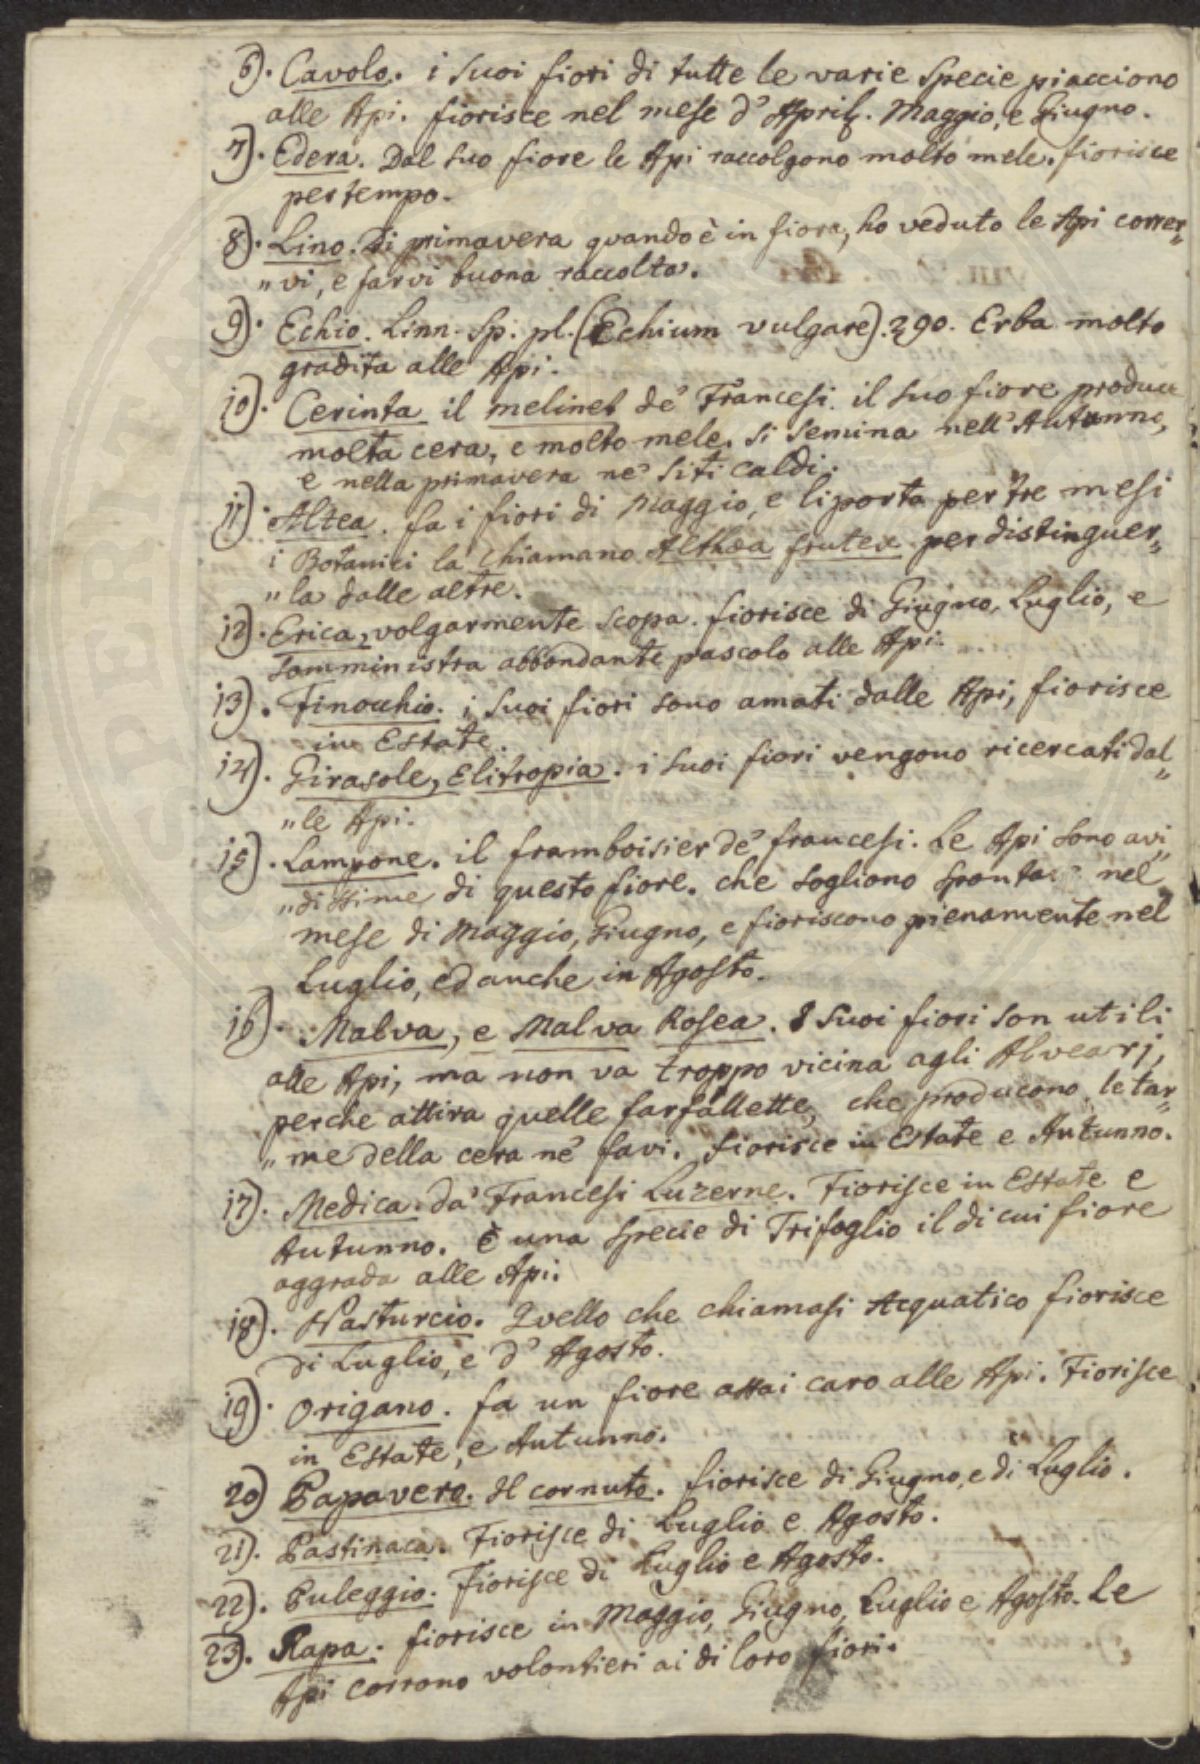 6). Cavolo. i suoi fiori di tutte le varie specie piacciono
alle Api. fiorisce nel mese d' April. Maggio, e Giugno.
7). Edera. Dal suo fiore le Api raccolgono molto mele. fiorisce
per tempo.
8). Lino. Di primavera quando è in fiore, ho veduto le Api correr„
„vi, e farvi buona raccolta.
9). Echio. Linn. Sp. pl. (Echium vulgare). 290. Erba molto
gradita alle Api.
10). Cerinta il melinet de' Francesi. il suo fiore produce
molta cera, e molto mele. Si semina nell' Autunno,
e nella primavera ne' siti caldi.
11). Altea. fa i fiori di Maggio, e li porta per tre mesi
i Botanici la chiamano Althæa frutex per distinguer„
„la dalle altre.
12). Erica, volgarmente scopa. fiorisce di Giugno, Luglio, e
somministra abbondante pascolo alle Api.
13). Finocchio. i suoi fiori sono amati dalle Api, fiorisce
in Estate.
14). Girasole, Elitropia. i suoi fiori vengono ricercati dal„
„le Api.
15). Lampone. il framboisier de' francesi. Le Api sono avi„
„dissime di questo fiore. che sogliono nel
mese di Maggio, Giugno, e fioriscono pienamente nel
Luglio, ed anche in Agosto.
16). Malva, e Malva Rosea. I suoi fiori son utili
alle Api, ma non va troppo vicina agli Alvearj,
perche attira quelle farfallette, che producono le tar„
„me della cera ne' favi. fiorisce in Estate e Autunno.
17). Medica. da' Francesi Luzerne. Fiorisce in Estate e
Autunno. È una specie di Trifoglio il di cui fiore
aggrada alle Api.
18). Nasturcio. Quello che chiamasi Acquatico fiorisce
di Luglio, e d' Agosto.
19). Origano. fa un fiore assai caro alle Api. Fiorisce
in Estate, e Autunno.
20) Papavero. Il cornuto. fiorisce di Giugno, e di Luglio.
21). Pastinaca. Fiorisce di Luglio e Agosto.
22). Puleggio. Fiorisce di Luglio e Agosto.
23). Rapa. fiorisce in Maggio, Giugno, Luglio e Agosto. Le
Api corrono volontieri ai di loro fiori.